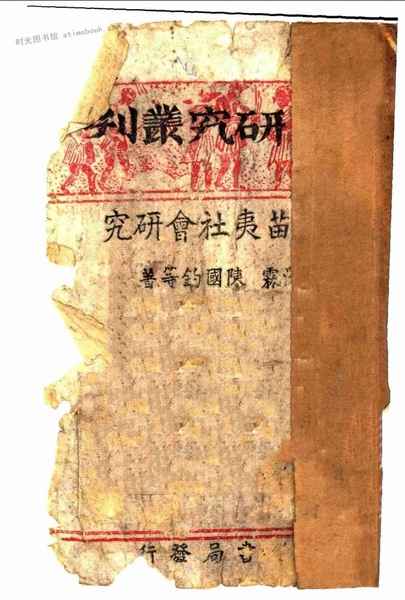 时光图书馆 atimebook
研究叢刊
苗夷社會研究
霖 陳國鈞等著
局發行